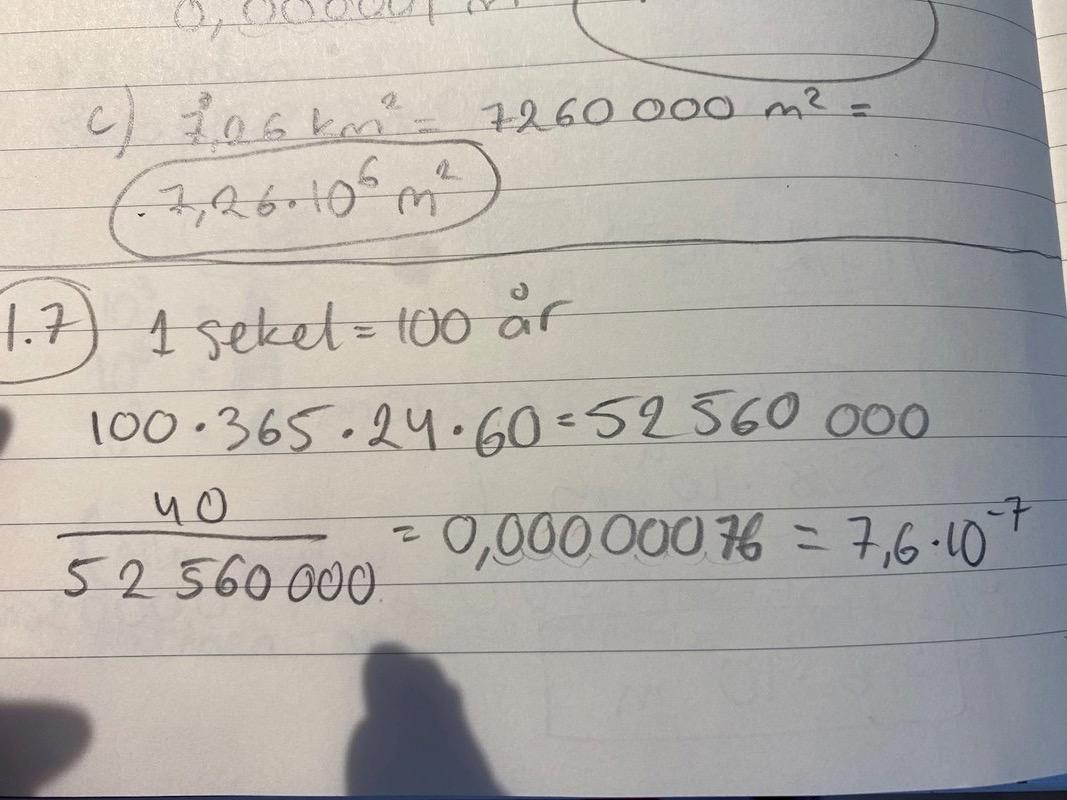 c) 7,26 km² = 7260 000 m² =
7,26·10⁶ m²
1.7) 1 sekel = 100 år
100·365·24·60=52 560 000
40/52 560 000 = 0,00000076 = 7,6·10⁻⁷